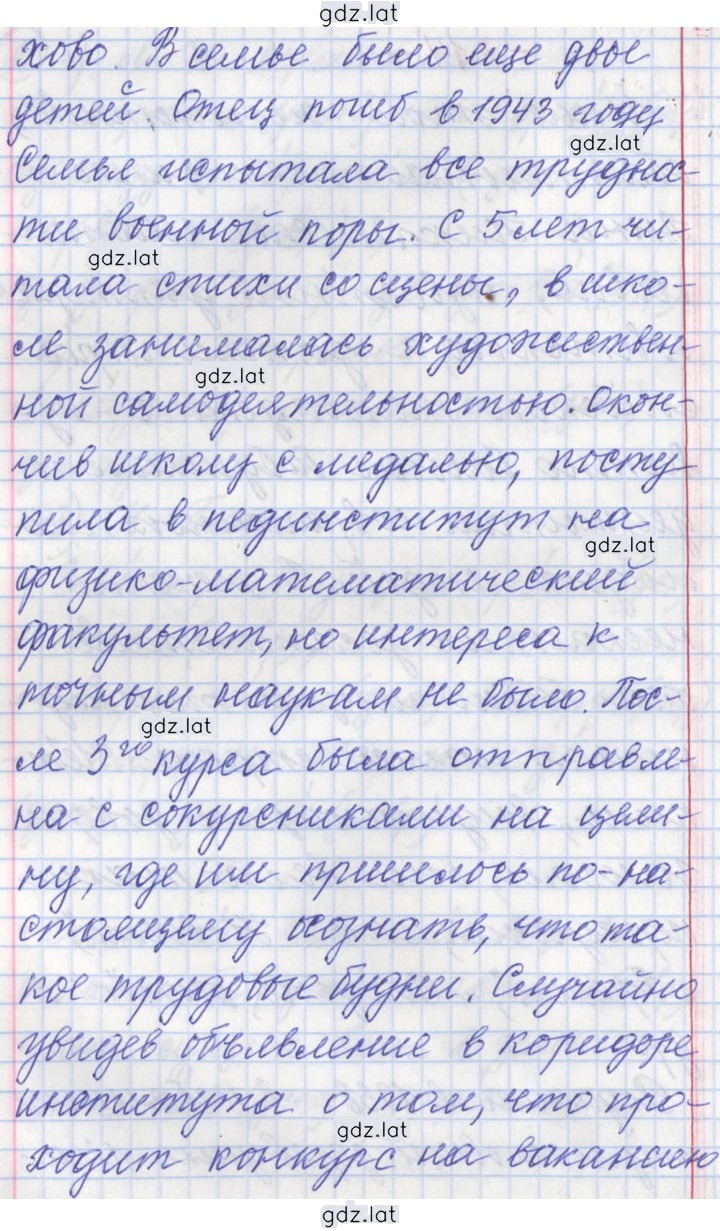 gdz.lat
хово. В семье было еще двое
детей. Отец погиб в 1943 году
gdz.lat
Семья испытала все труднос-
ти военной поры. С 5 лет чи-
gdz.lat
тала стихи со сцены, в шко-
ле занималась художествен-
gdz.lat
ной самодеятельностью. Окон-
чив школу с медалью, посту-
пила в пединститут на
gdz.lat
физико-математический
факультет, но интереса к
точным наукам не было. Пос-
gdz.lat
ле 3го курса была отправле-
на с сокурсниками на цели-
ну, где им пришлось по-на-
стоящему осознать, что та-
кое трудовые будни. Случайно
увидев объявление в коридоре
института о том, что про-
gdz.lat
ходит конкурс на вакансию
gdz.lat